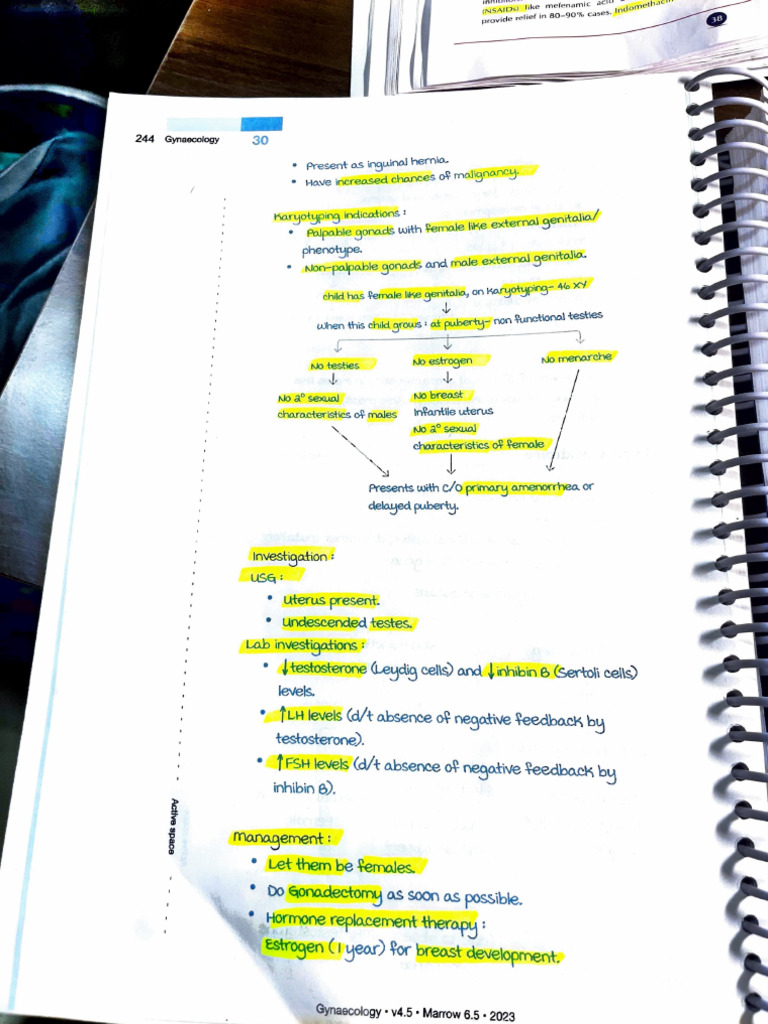 (NSAIDs) like mefenamic acid
provide relief in 80–90% cases. Indomethacin
38
244 Gynaecology 30
• Present as inguinal hernia.
• Have increased chances of malignancy.
Karyotyping indications :
• Palpable gonads with female like external genitalia/
phenotype.
• Non-palpable gonads and male external genitalia.
child has female like genitalia, on Karyotyping- 46 XY
when this child grows : at puberty- non functional testies
No testies
No estrogen
No menarche
No 2° sexual
characteristics of males
No breast
Infantile uterus
No 2° sexual
characteristics of female
Presents with c/o primary amenorrhea or
delayed puberty.
Investigation :
USG :
• Uterus present.
• Undescended testes.
Lab investigations :
• ↓testosterone (Leydig cells) and ↓inhibin B (Sertoli cells)
levels.
• ↑LH levels (d/t absence of negative feedback by
testosterone).
• ↑FSH levels (d/t absence of negative feedback by
inhibin B).
Active space
Management :
• Let them be females.
• Do Gonadectomy as soon as possible.
• Hormone replacement therapy :
Estrogen (1 year) for breast development.
Gynaecology • v4.5 • Marrow 6.5 • 2023